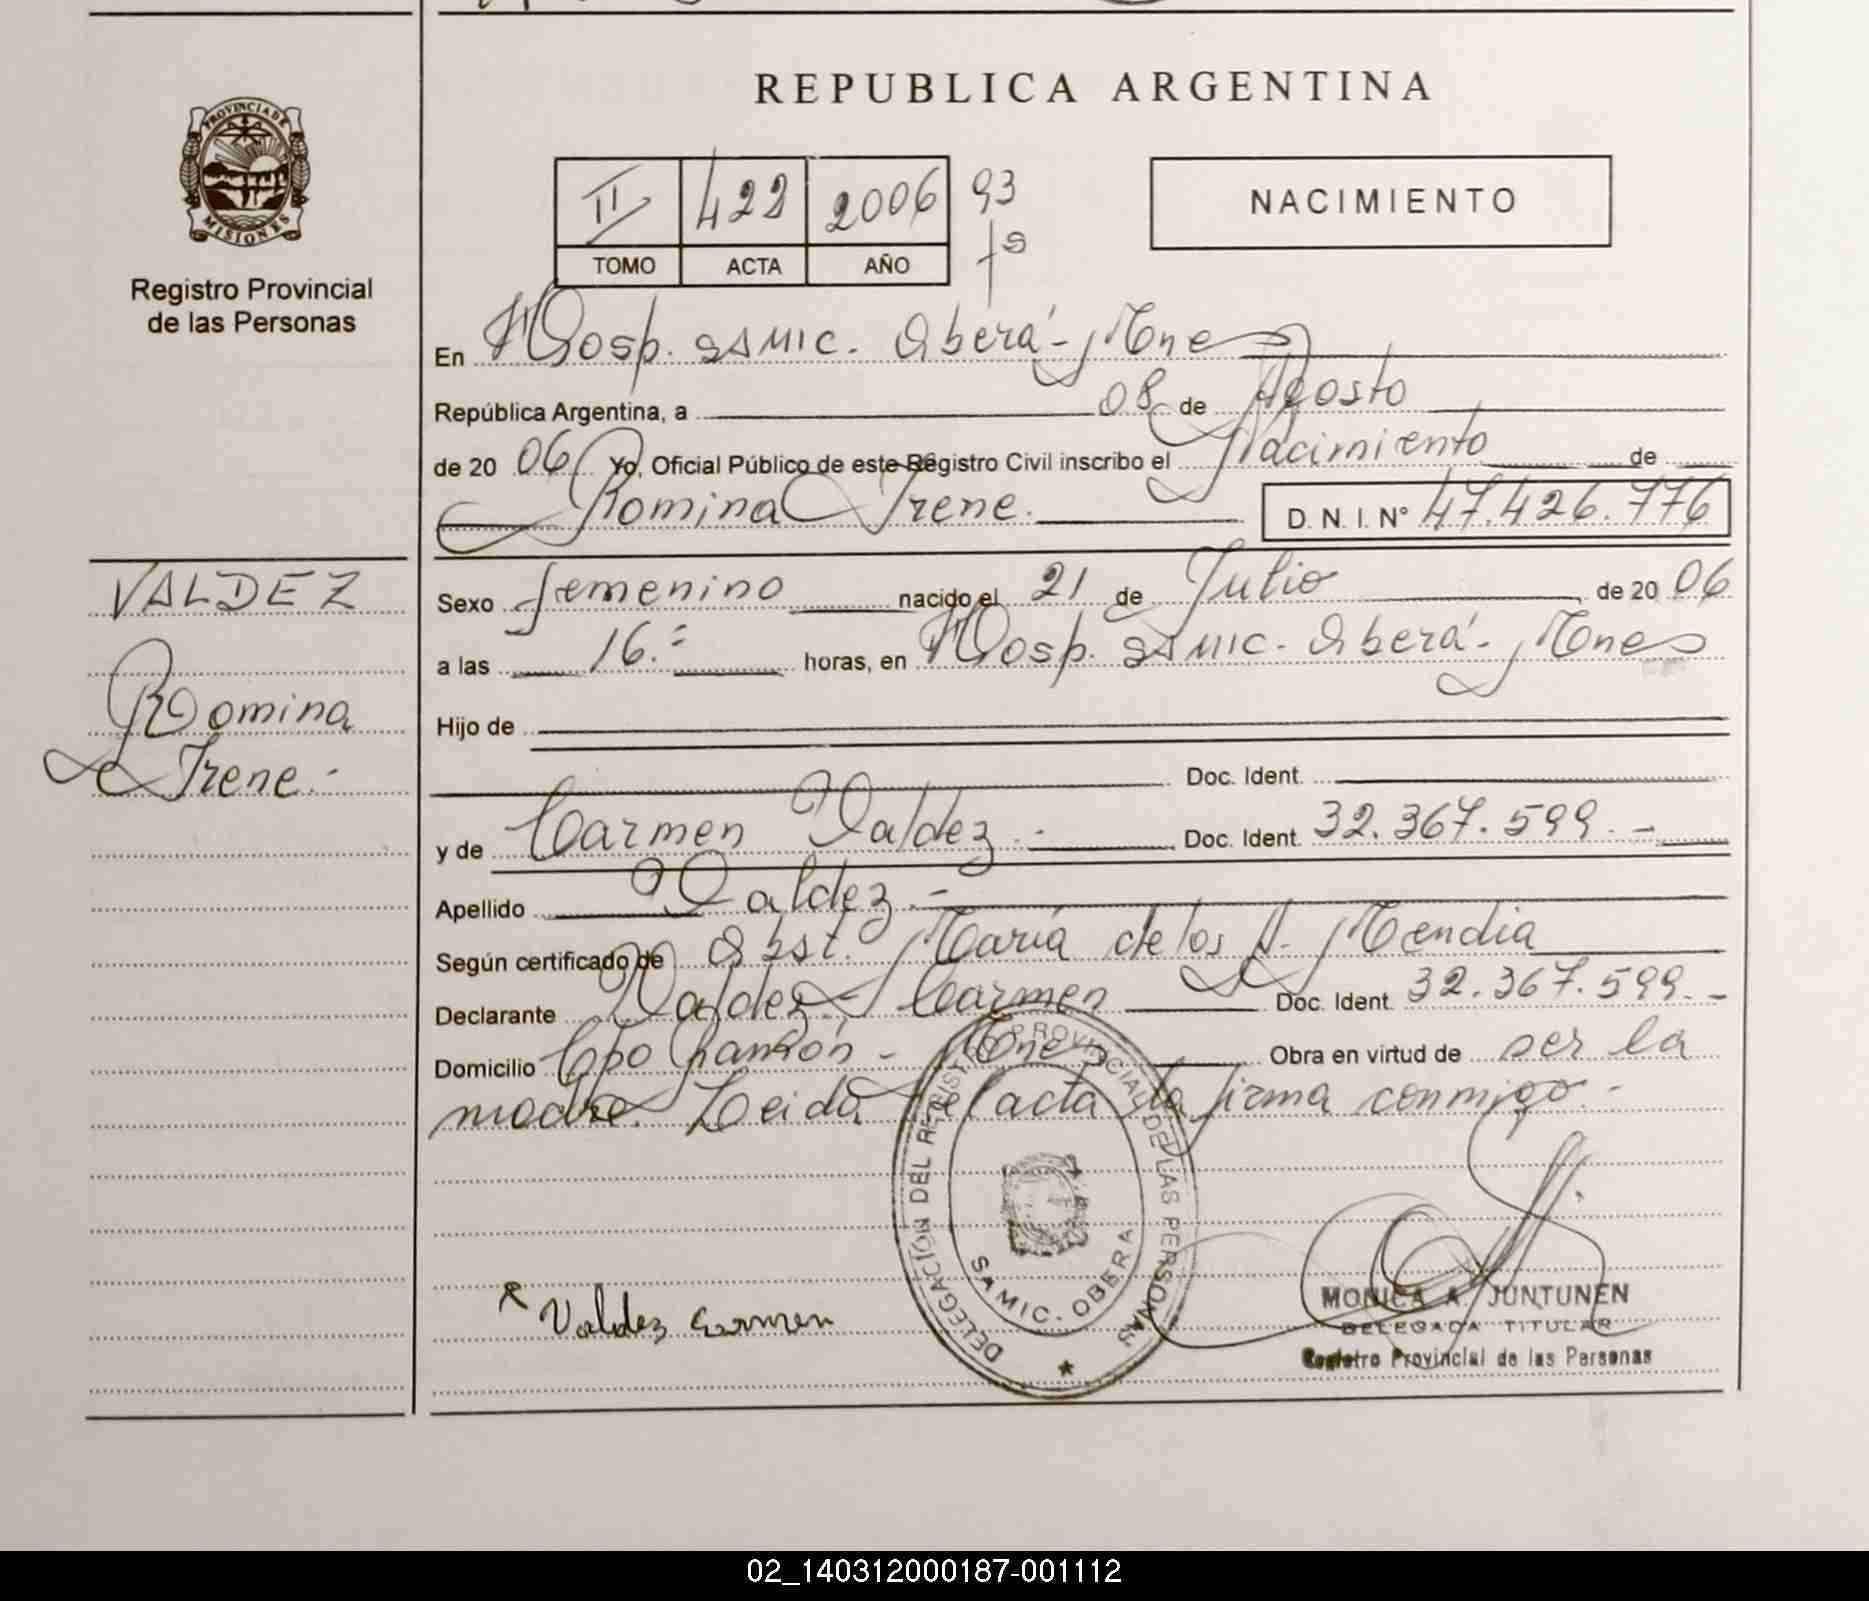 REPUBLICA ARGENTINA
PROVINCIA DE MISIONES
Registro Provincial
de las Personas
II 422 2006 93
TOMO ACTA AÑO fs
NACIMIENTO
En Hosp. SAMIC. Oberá - Mnes
República Argentina, a 08 de Agosto
de 20 06 Yo, Oficial Público de este Registro Civil inscribo el Nacimiento de
Romina Irene. D. N. I. N° 47.426.776
VALDEZ
Romina
Irene.-
Sexo femenino nacido el 21 de Julio de 20 06
a las 16.= horas, en Hosp. SAMIC. Oberá - Mnes
Hijo de
Doc. Ident.
y de Carmen Valdez.- Doc. Ident. 32.367.599.-
Apellido Valdez.-
Según certificado de Obst. María de los A. Mendia
Declarante Valdez, Carmen Doc. Ident. 32.367.599.-
Domicilio Cpo Ramón - Mnes Obra en virtud de ser la
madre. Leida el acta la firma conmigo.-
DELEGACIÓN DEL REGISTRO PROVINCIAL DE LAS PERSONAS
SAMIC. OBERA
Valdez Carmen
MONICA A. JUNTUNEN
DELEGADA TITULAR
Registro Provincial de las Personas
02_140312000187-001112